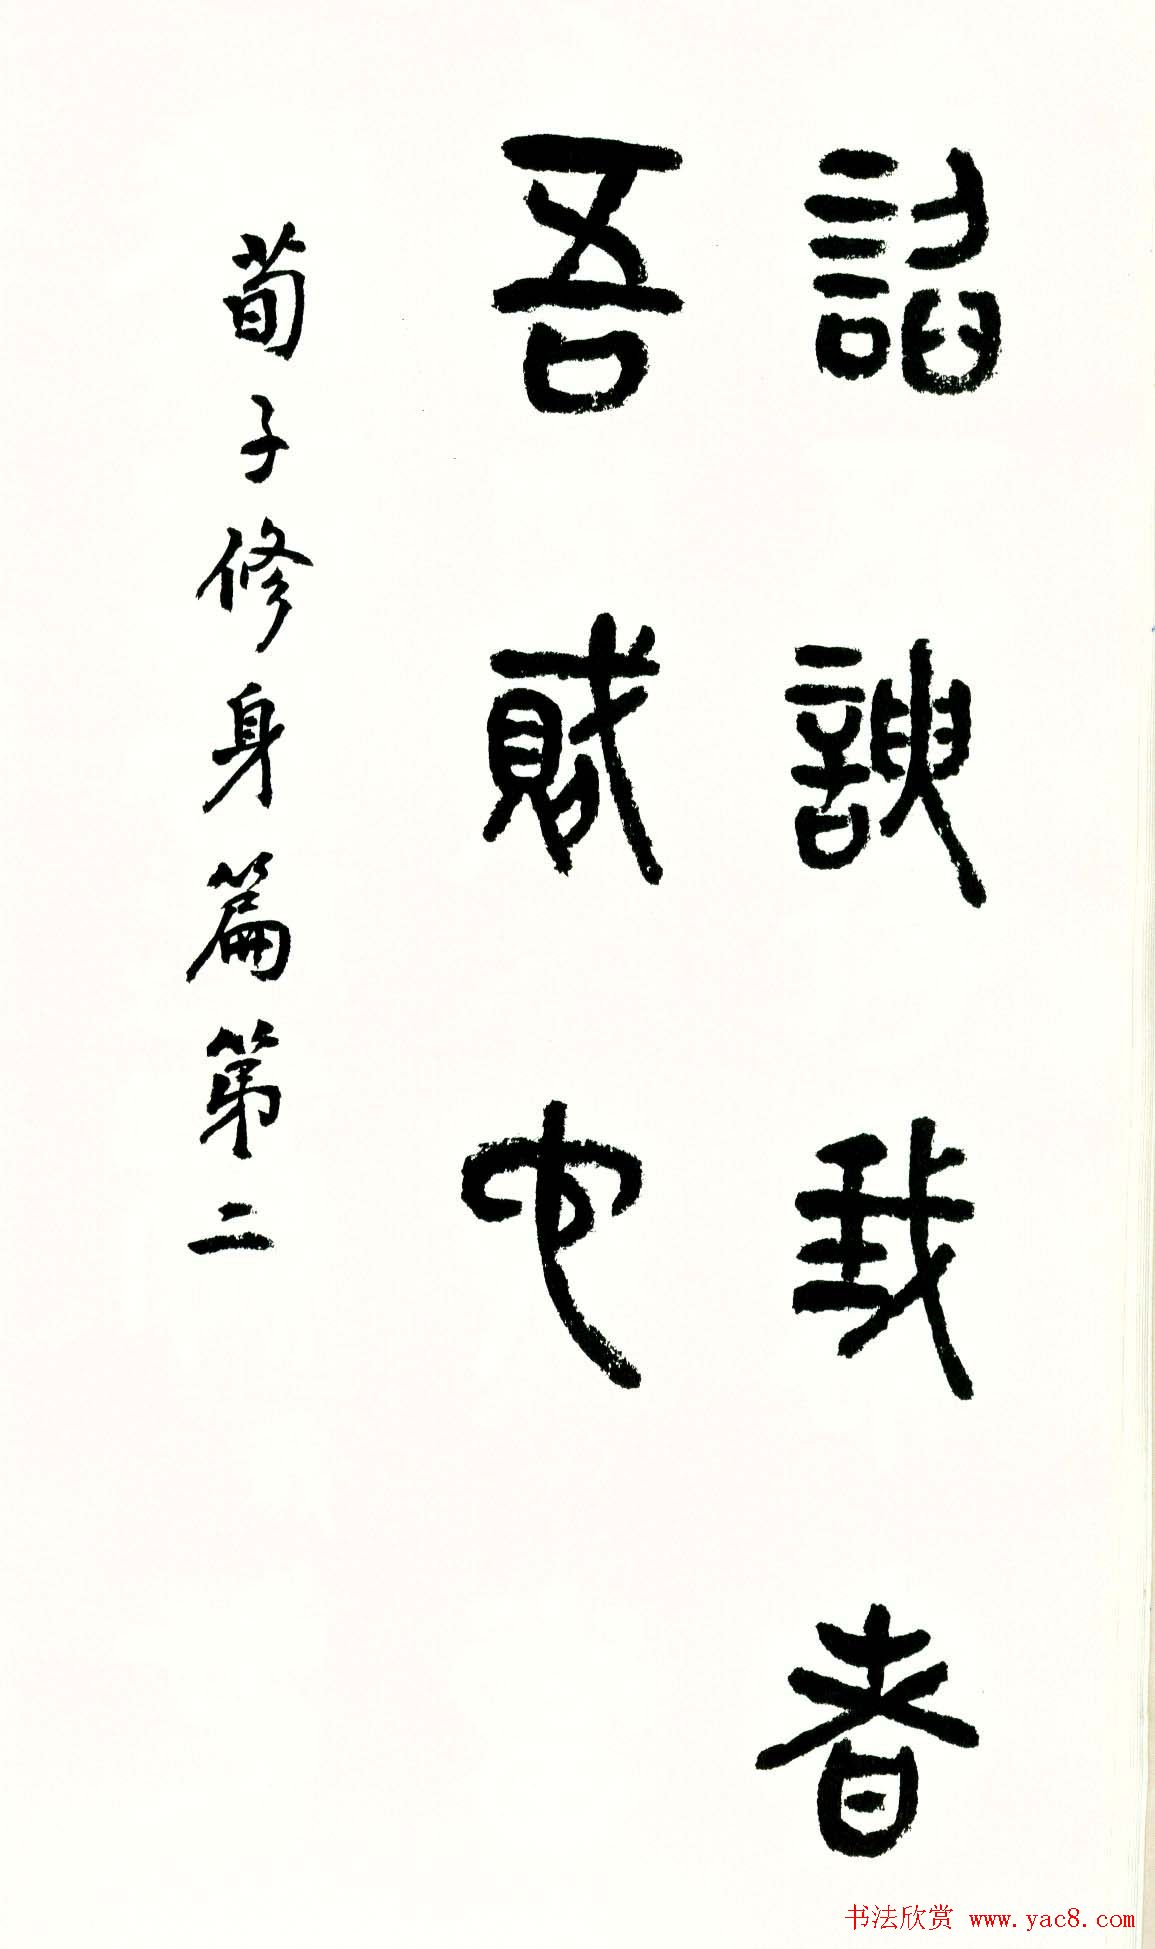 諂諛我者
吾賊也
荀子修身篇第二
书法欣赏 www.yac8.com